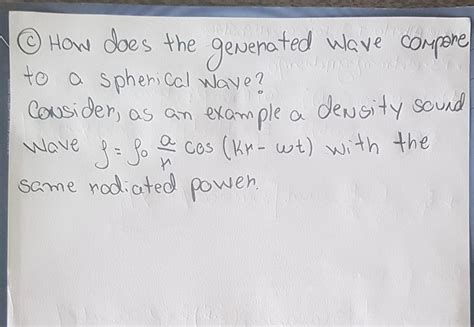 Ⓒ How does the generated wave compare
to a spherical wave?
Consider, as an example a density sound
wave ρ = ρ₀ a/r cos (kr - ωt) with the
same radiated power.